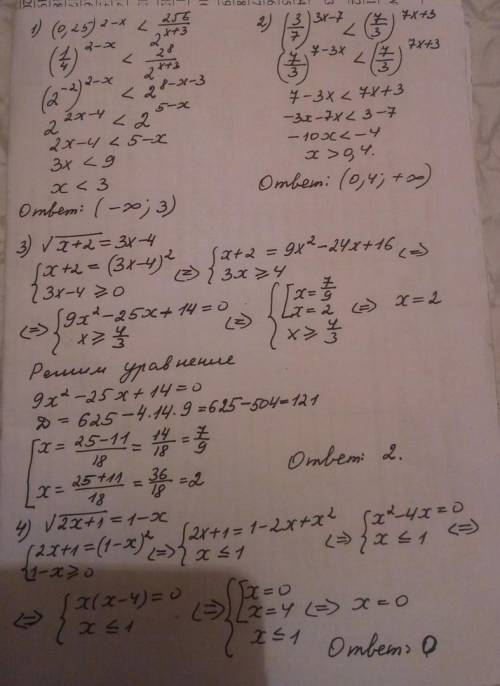 1) (0,25)^{2-x} < \frac{256}{2^{x+3}}
(\frac{1}{4})^{2-x} < \frac{2^8}{2^{x+3}}
(2^{-2})^{2-x} < 2^{8-x-3}
2^{2x-4} < 2^{5-x}
2x-4 < 5-x
3x < 9
x < 3
Ответ: (-∞; 3)
2) (\frac{3}{7})^{3x-7} < (\frac{7}{3})^{7x+3}
(\frac{7}{3})^{7-3x} < (\frac{7}{3})^{7x+3}
7-3x < 7x+3
-3x-7x < 3-7
-10x < -4
x > 0,4.
Ответ: (0,4; +∞)
3) \sqrt{x+2} = 3x-4
{ x+2 = (3x-4)^2 ; 3x-4 ≥ 0 <=> { x+2 = 9x^2-24x+16 ; 3x ≥ 4 <=>
<=> { 9x^2-25x+14=0 ; x ≥ \frac{4}{3} <=> { [ x=\frac{7}{9} ; x=2 ; x ≥ \frac{4}{3} <=> x=2
Решим уравнение
9x^2-25x+14=0
D = 625-4·14·9=625-504=121
[ x = \frac{25-11}{18} = \frac{14}{18} = \frac{7}{9}
x = \frac{25+11}{18} = \frac{36}{18} = 2
Ответ: 2.
4) \sqrt{2x+1} = 1-x
{ 2x+1=(1-x)^2 ; 1-x ≥ 0 <=> { 2x+1=1-2x+x^2 ; x ≤ 1 <=> { x^2-4x=0 ; x ≤ 1 <=>
<=> { x(x-4)=0 ; x ≤ 1 <=> { [ x=0 ; x=4 ; x ≤ 1 <=> x=0
Ответ: 0